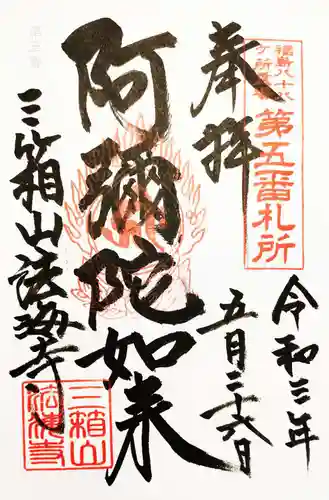 奉拝
福島八十八
ケ所霊場
第五番札所
令和三年
五月二十六日
阿彌陀如来
三箱山法海寺
三箱山
法海寺